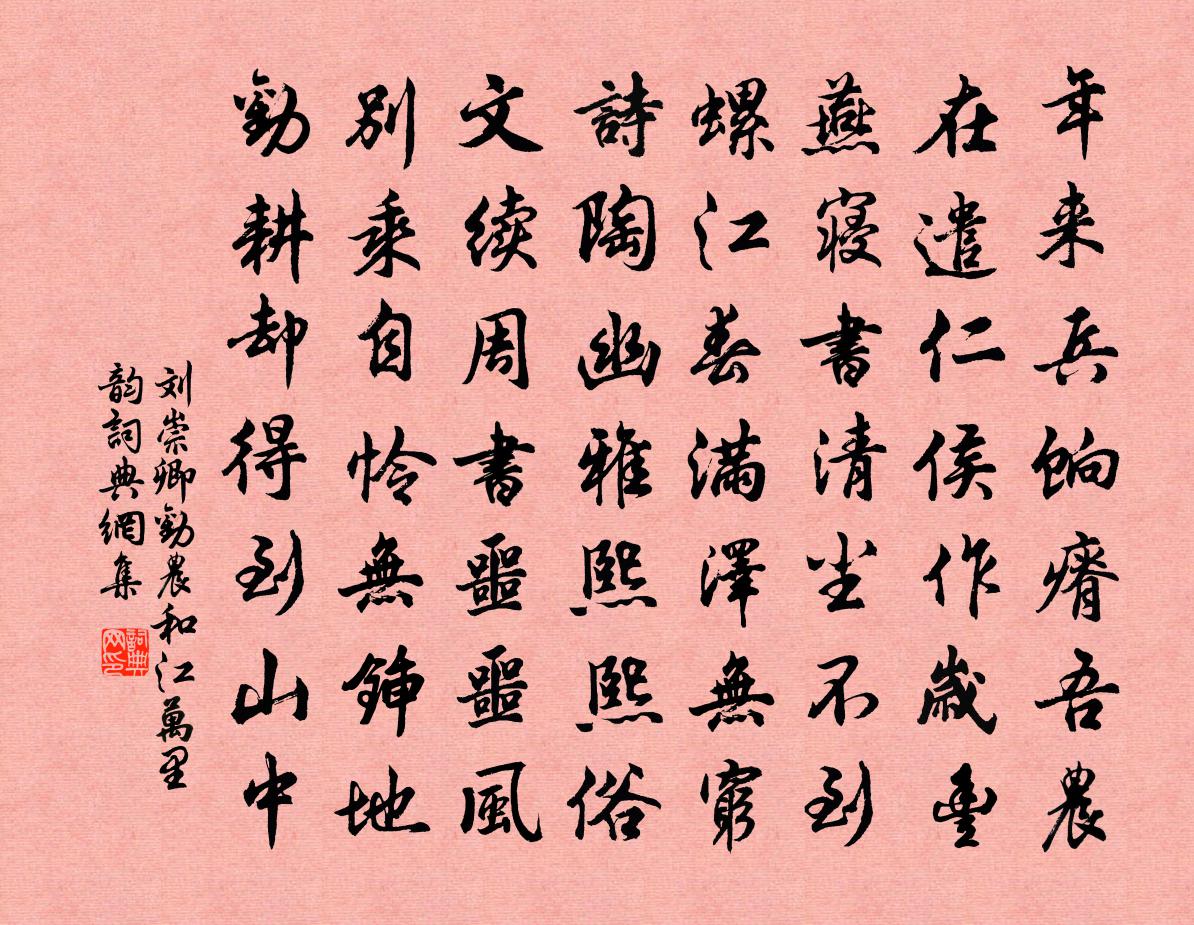 年来兵餉瘠吾農
在遣仁侯作歲豐
燕寢書清尘不到
螺江春滿澤無窮
詩陶幽雅熙熙俗
文续周書噩噩風
別乘自怜無鍤地
勸耕却得到山中
刘崇卿勸農和江萬里
韵詞典網集
詞典网印